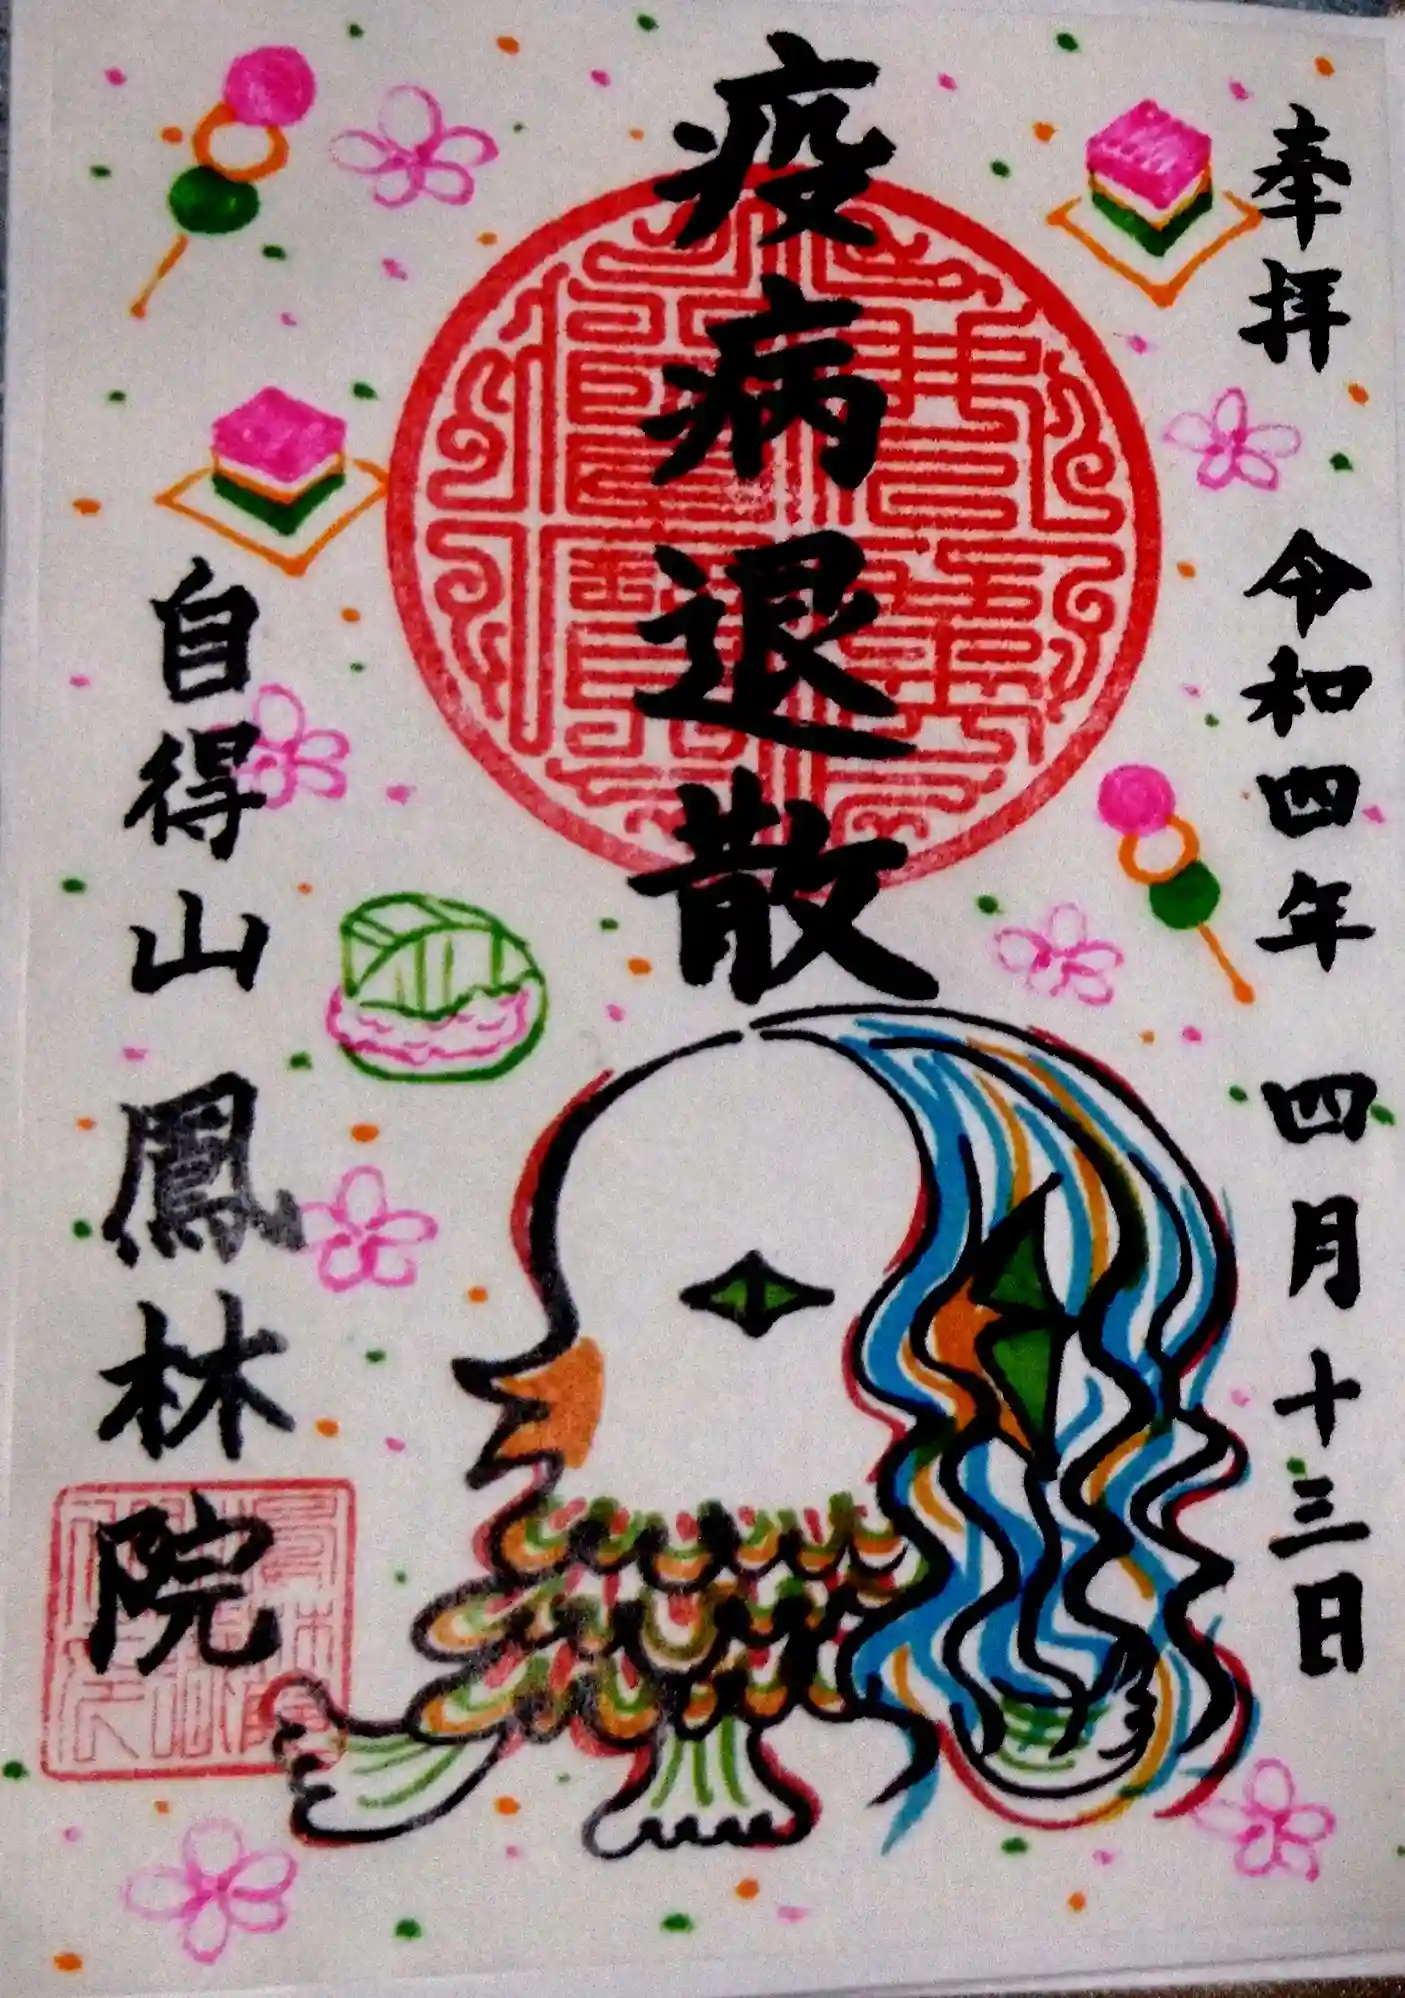 奉拝 令和四年 四月十三日
疫病退散
自得山 鳳林院